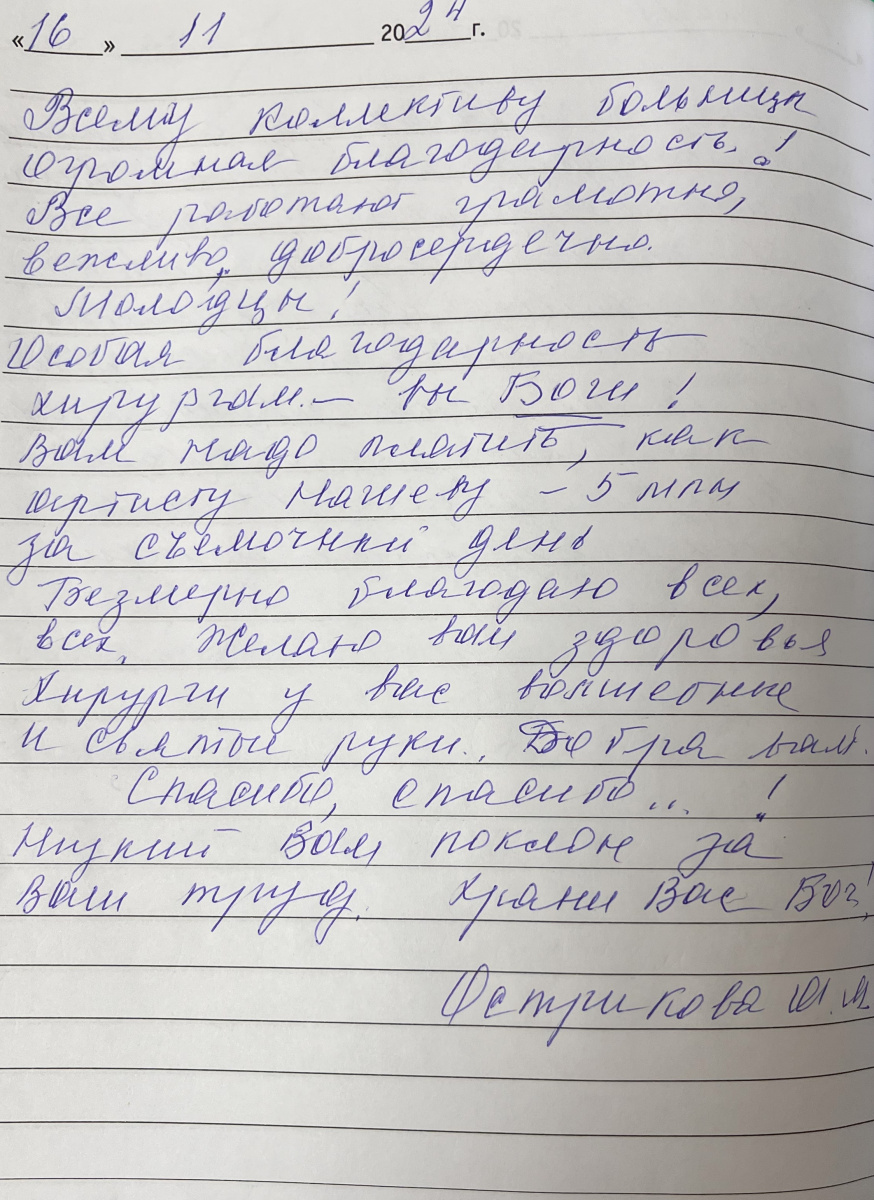 «16» 11 2024 г.
Всему коллективу больницы
огромная благодарность!
Все работают грамотно,
вежливо, добросердечно.
Молодцы!
Особая благодарность
хирургам – вы Боги!
Вам надо платить, как
артисту Нагиеву – 5 млн
за съемочный день
Безмерно благодаю всех,
всех. Желаю вам здоровья
Хирурги у вас волшебные
и святые руки. Добра вам.
Спасибо, спасибо...!
Низкий Вам поклон за
Ваш труд. Храни Вас Бог!
Острикова А.М.